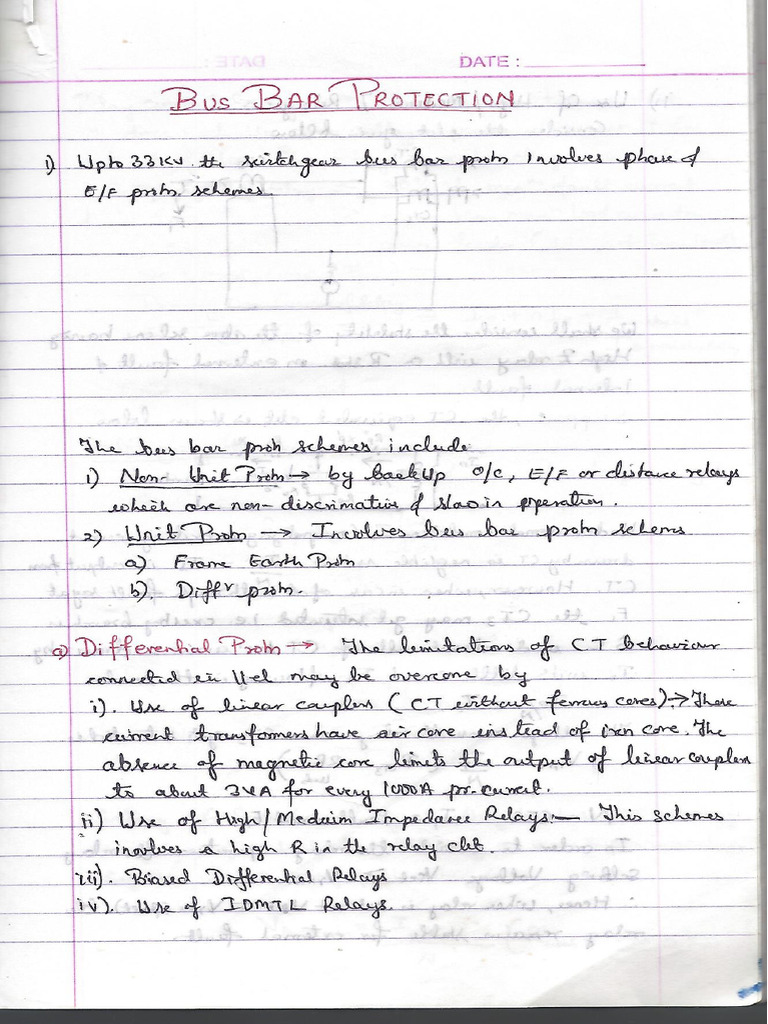 DATE :
BUS BAR PROTECTION
1) Upto 33KV the switchgear bus bar protn involves phase &
E/F protn schemes.
The bus bar protn schemes include
1) Non-Unit Protn → by backup o/c, E/F or distance relays
which are non-discrimative & slow in operation.
2) Unit Protn → Involves bus bar protn schems
a) Frame Earth Protn
b). Diffr protn.
a) Differential Protn → The limitations of CT behaviour
connected in ll-el may be overcome by
i). Use of linear couplers (CT without ferrous cores) → These
current transformers have air core instead of iron core. The
absence of magnetic core limits the output of linear couplers
to about 3VA for every 1000A pr. current.
ii) Use of High/Medium Impedance Relays:— This schemes
involves a high R in the relay ckt.
iii). Biased Differential Relays
iv). Use of IDMTL Relays.